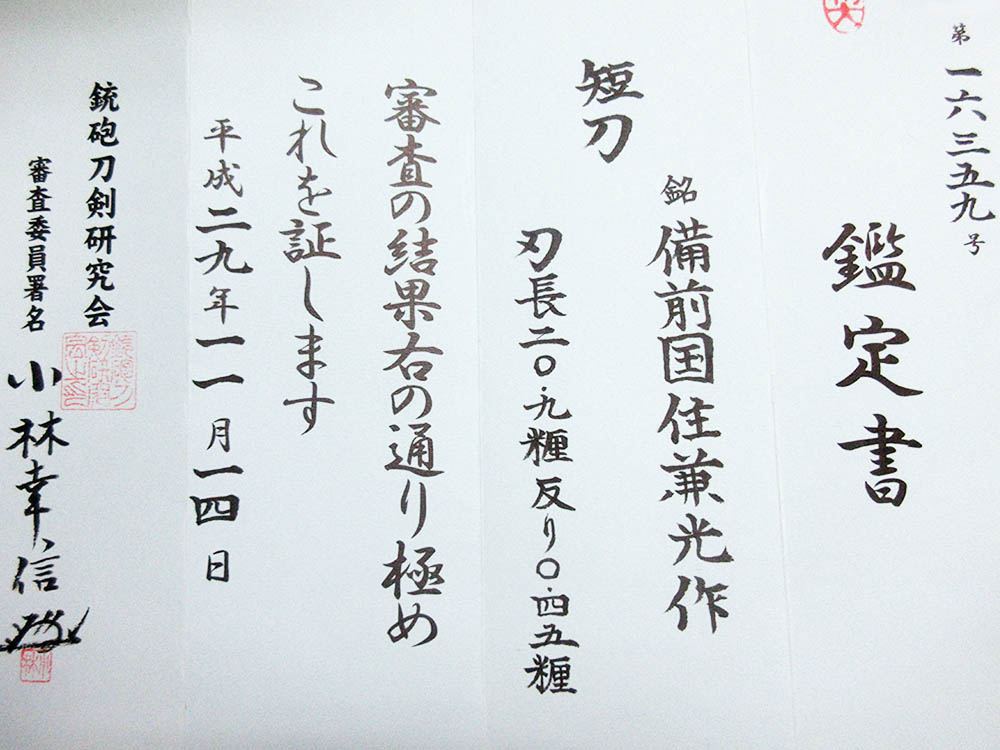 第一六三五九号
鑑定書
短刀
銘 備前国住兼光作
刃長二〇.九糎 反り〇.四五糎
審査の結果右の通り極め
これを証します
平成二九年一一月一四日
銃砲刀剣研究会
審査委員署名 小林幸信